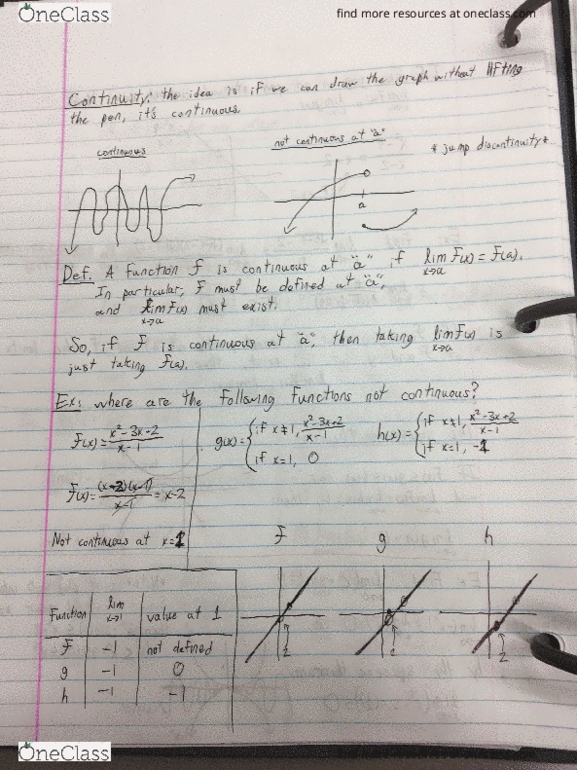 OneClass
find more resources at oneclass.com
Continuity: the idea is if we can draw the graph without lifting
the pen, it's continuous.
continuous
not continuous at "a"
* jump discontinuity *
a
Def. A function f is continuous at "a" if lim x→a F(x) = F(a).
In particular, F must be defined at "a",
and lim x→a F(x) must exist.
So, if F is continuous at "a", then taking lim x→a F(x) is
just taking F(a).
Ex: where are the following functions not continuous?
F(x) = x²-3x+2 / x-1
g(x) = { if x≠1, x²-3x+2 / x-1
if x=1, 0
h(x) = { if x≠1, x²-3x+2 / x-1
if x=1, -1
F(x) = (x-2)(x-1) / x-1 = x-2
Not continuous at x=1
f
g
h
Function | lim x→1 | value at 1
f | -1 | not defined
g | -1 | 0
h | -1 | -1
OneClass